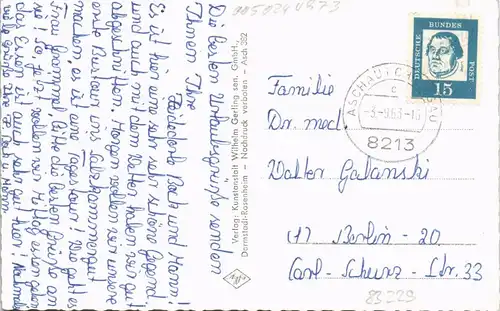 0050244873
Die besten Urlaubsgrüße senden
Ihnen Ihre
Friederike Bach und Hanni!
Es ist hier eine sehr sehr schöne Gegend
und auch mit dem Wetter haben wir gut
abgeschnitten. Morgen wollen wir unsere
erste Bustour ins Salzkammergut
machen, es ist eine Tagestour! Wie geht es
Frau Bitte die besten Grüße an
sie! So, jetzt wollen wir Mittag essen gehen
das Essen ist auch sehr gut hier! Nochmals
viele Grüße Ihre F. Bach u. Hanni
Verlag: Kunstanstalt Wilhelm Gerling sen. GmbH.,
Darmstadt-Rosenheim - Nachdruck verboten - Asch 382
DEUTSCHE BUNDESPOST
15
ASCHAU
c
-3.-9.63-16
8213
Familie
Dr. med.
Walter Galanski
(1) Berlin - 20
Carl-Schurz-Str. 33
83229